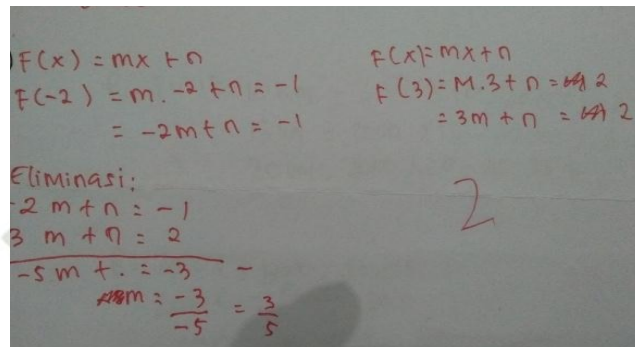 F(x) = mx + n
F(-2) = m . -2 + n = -1
= -2m + n = -1
F(x) = mx + n
F(3) = M.3 + n = 2
= 3m + n = 2
Eliminasi:
-2 m + n = -1
3 m + n = 2
-5 m + . = -3 -
m = -3/-5 = 3/5
2